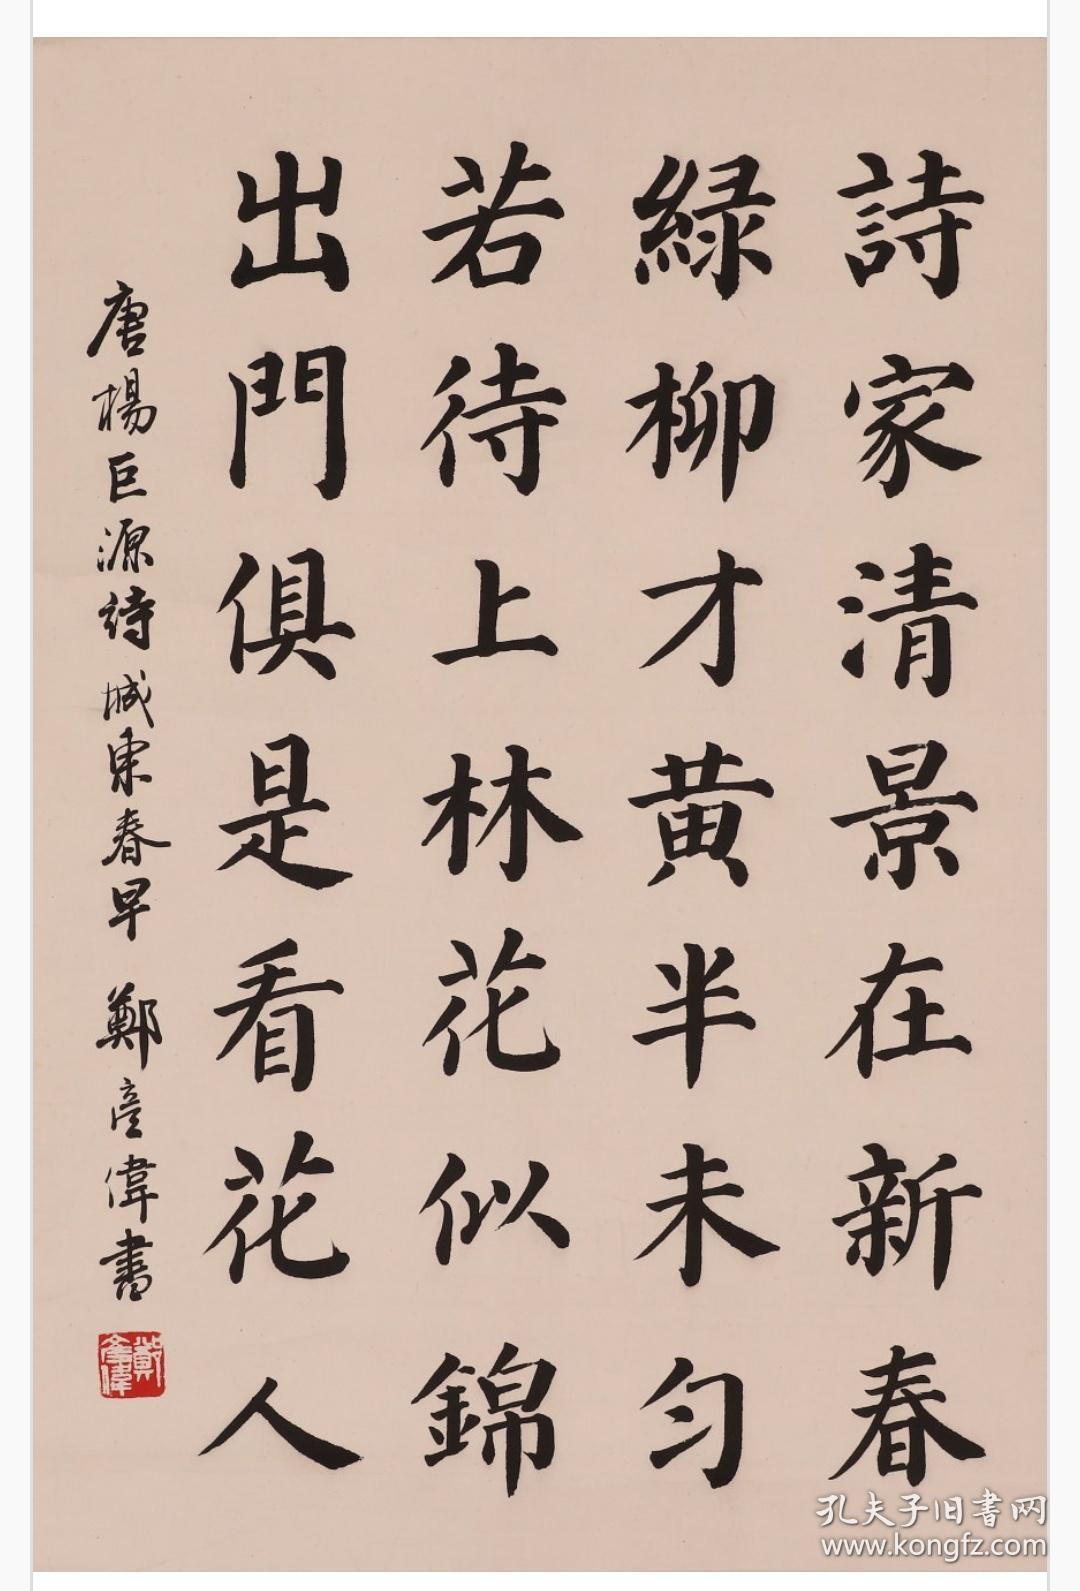 詩家清景在新春
緑柳才黄半未匀
若待上林花似錦
出門俱是看花人
唐楊巨源詩城東春早 鄭彦偉書
鄭彦偉
孔夫子旧書网
www.kongfz.com